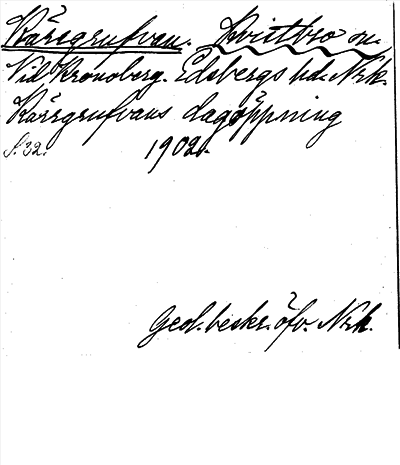 Kärrgrufvan. Kvistbro sn.
Vid Kronoberg. Edsbergs hd. Nrk.
Kärrgrufvans dagöppning
S. 32. 1902.
Geol. beskr. öfv. Nrk.